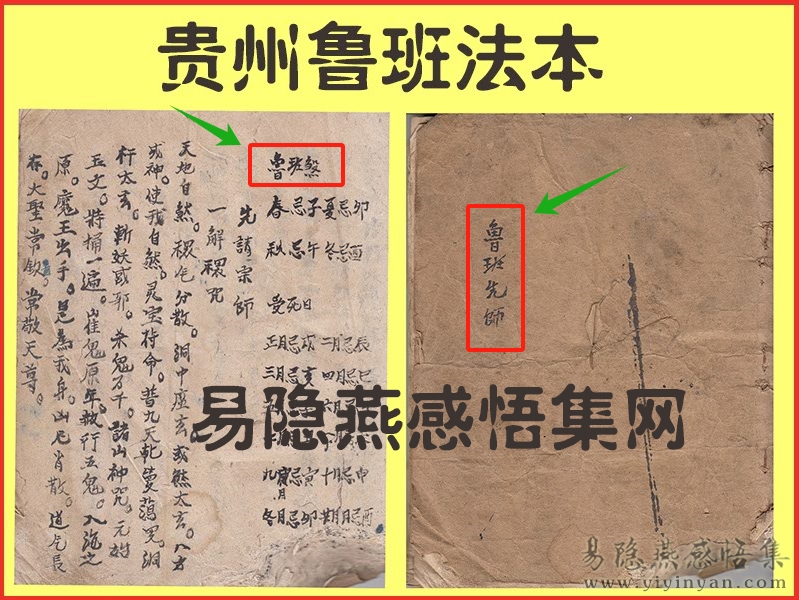 贵州鲁班法本
魯班煞
春忌子夏忌卯
秋忌午冬忌酉
受死日
正月忌戌二月忌辰
三月忌亥四月忌巳
九月忌寅十月忌申
冬月忌卯 月忌酉
先請宗師
一解穢咒
天地自然。穢炁分散。洞中 玄。或然太玄。八方
威神。使我自然。灵宝符命。普九天乾 洞
太玄。斬妖 邪。杀鬼万千。諸山神咒。元始
玉文。持 一遍。 鬼 年。 行五 。入海之
原。魔王 手。 我身。山凶肖散。道炁長
存。大聖常 。常敬天尊。
魯班先師
易隐燕感悟集网
易隐燕感悟集
www.yiyinyan.com